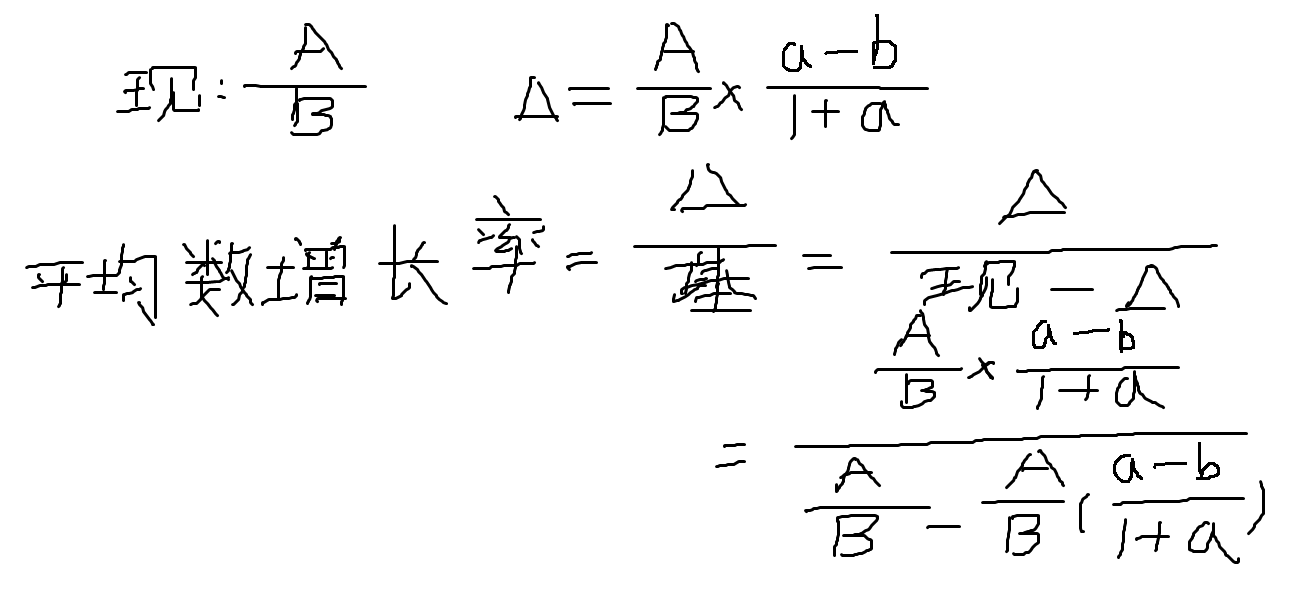 现: A/B Δ = A/B × (a-b)/(1+a)
平均数增长率 = Δ/基 = Δ/(现-Δ)
= (A/B × (a-b)/(1+a)) / (A/B - A/B((a-b)/(1+a)))